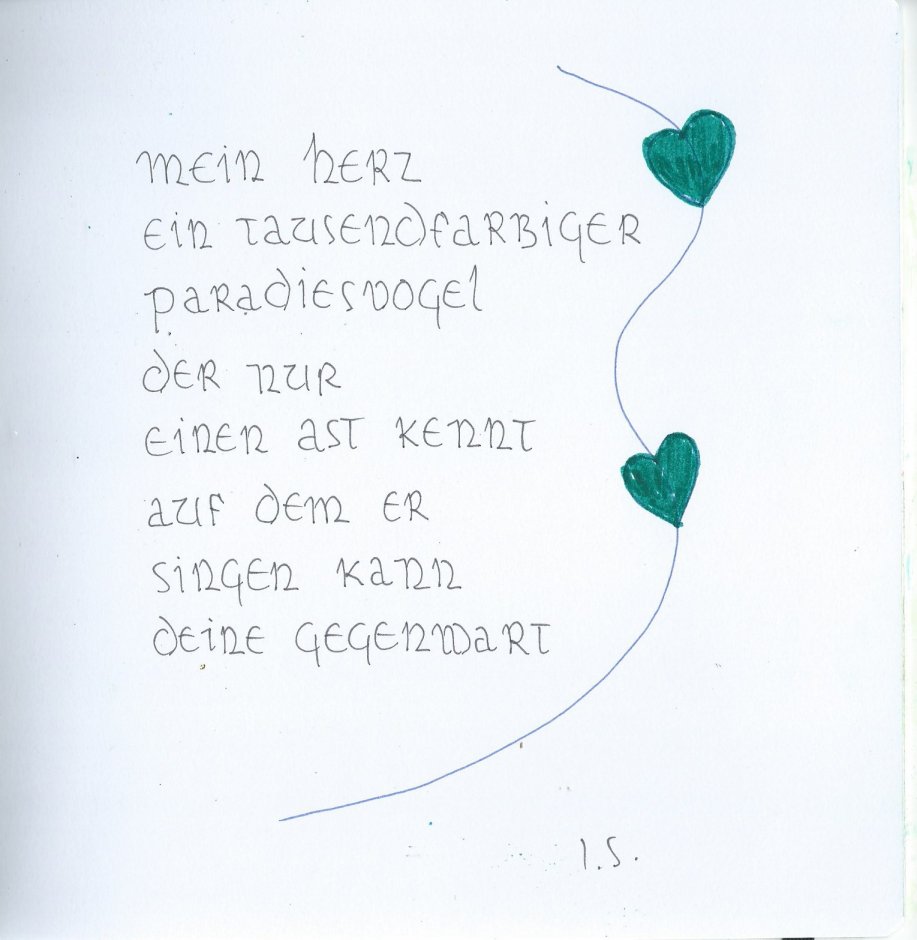 mein herz
ein tausendfarbiger
paradiesvogel
der nur
einen ast kennt
auf dem er
singen kann
deine gegenwart
I.S.